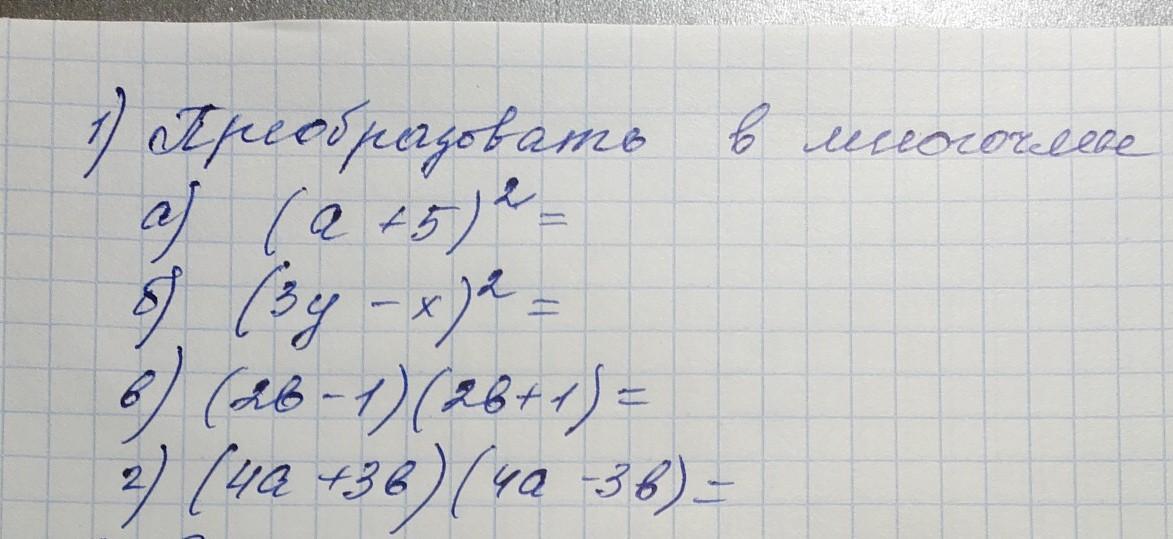 1) Преобразовать в многочлен
а) (a + 5)² =
б) (3y - x)² =
в) (2в - 1)(2в + 1) =
г) (4a + 3в)(4a - 3в) =